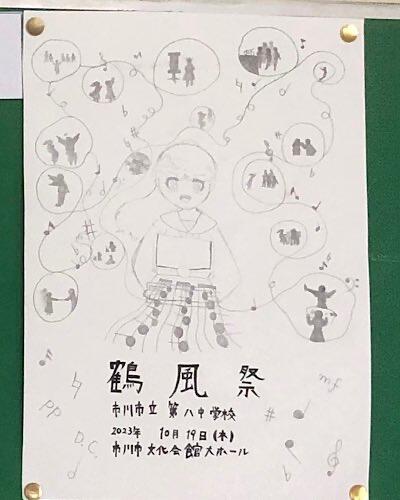 鶴風祭
市川市立 第八中学校
2023年 10月 19日(木)
市川市文化会館大ホール
mf
pp
D.C.